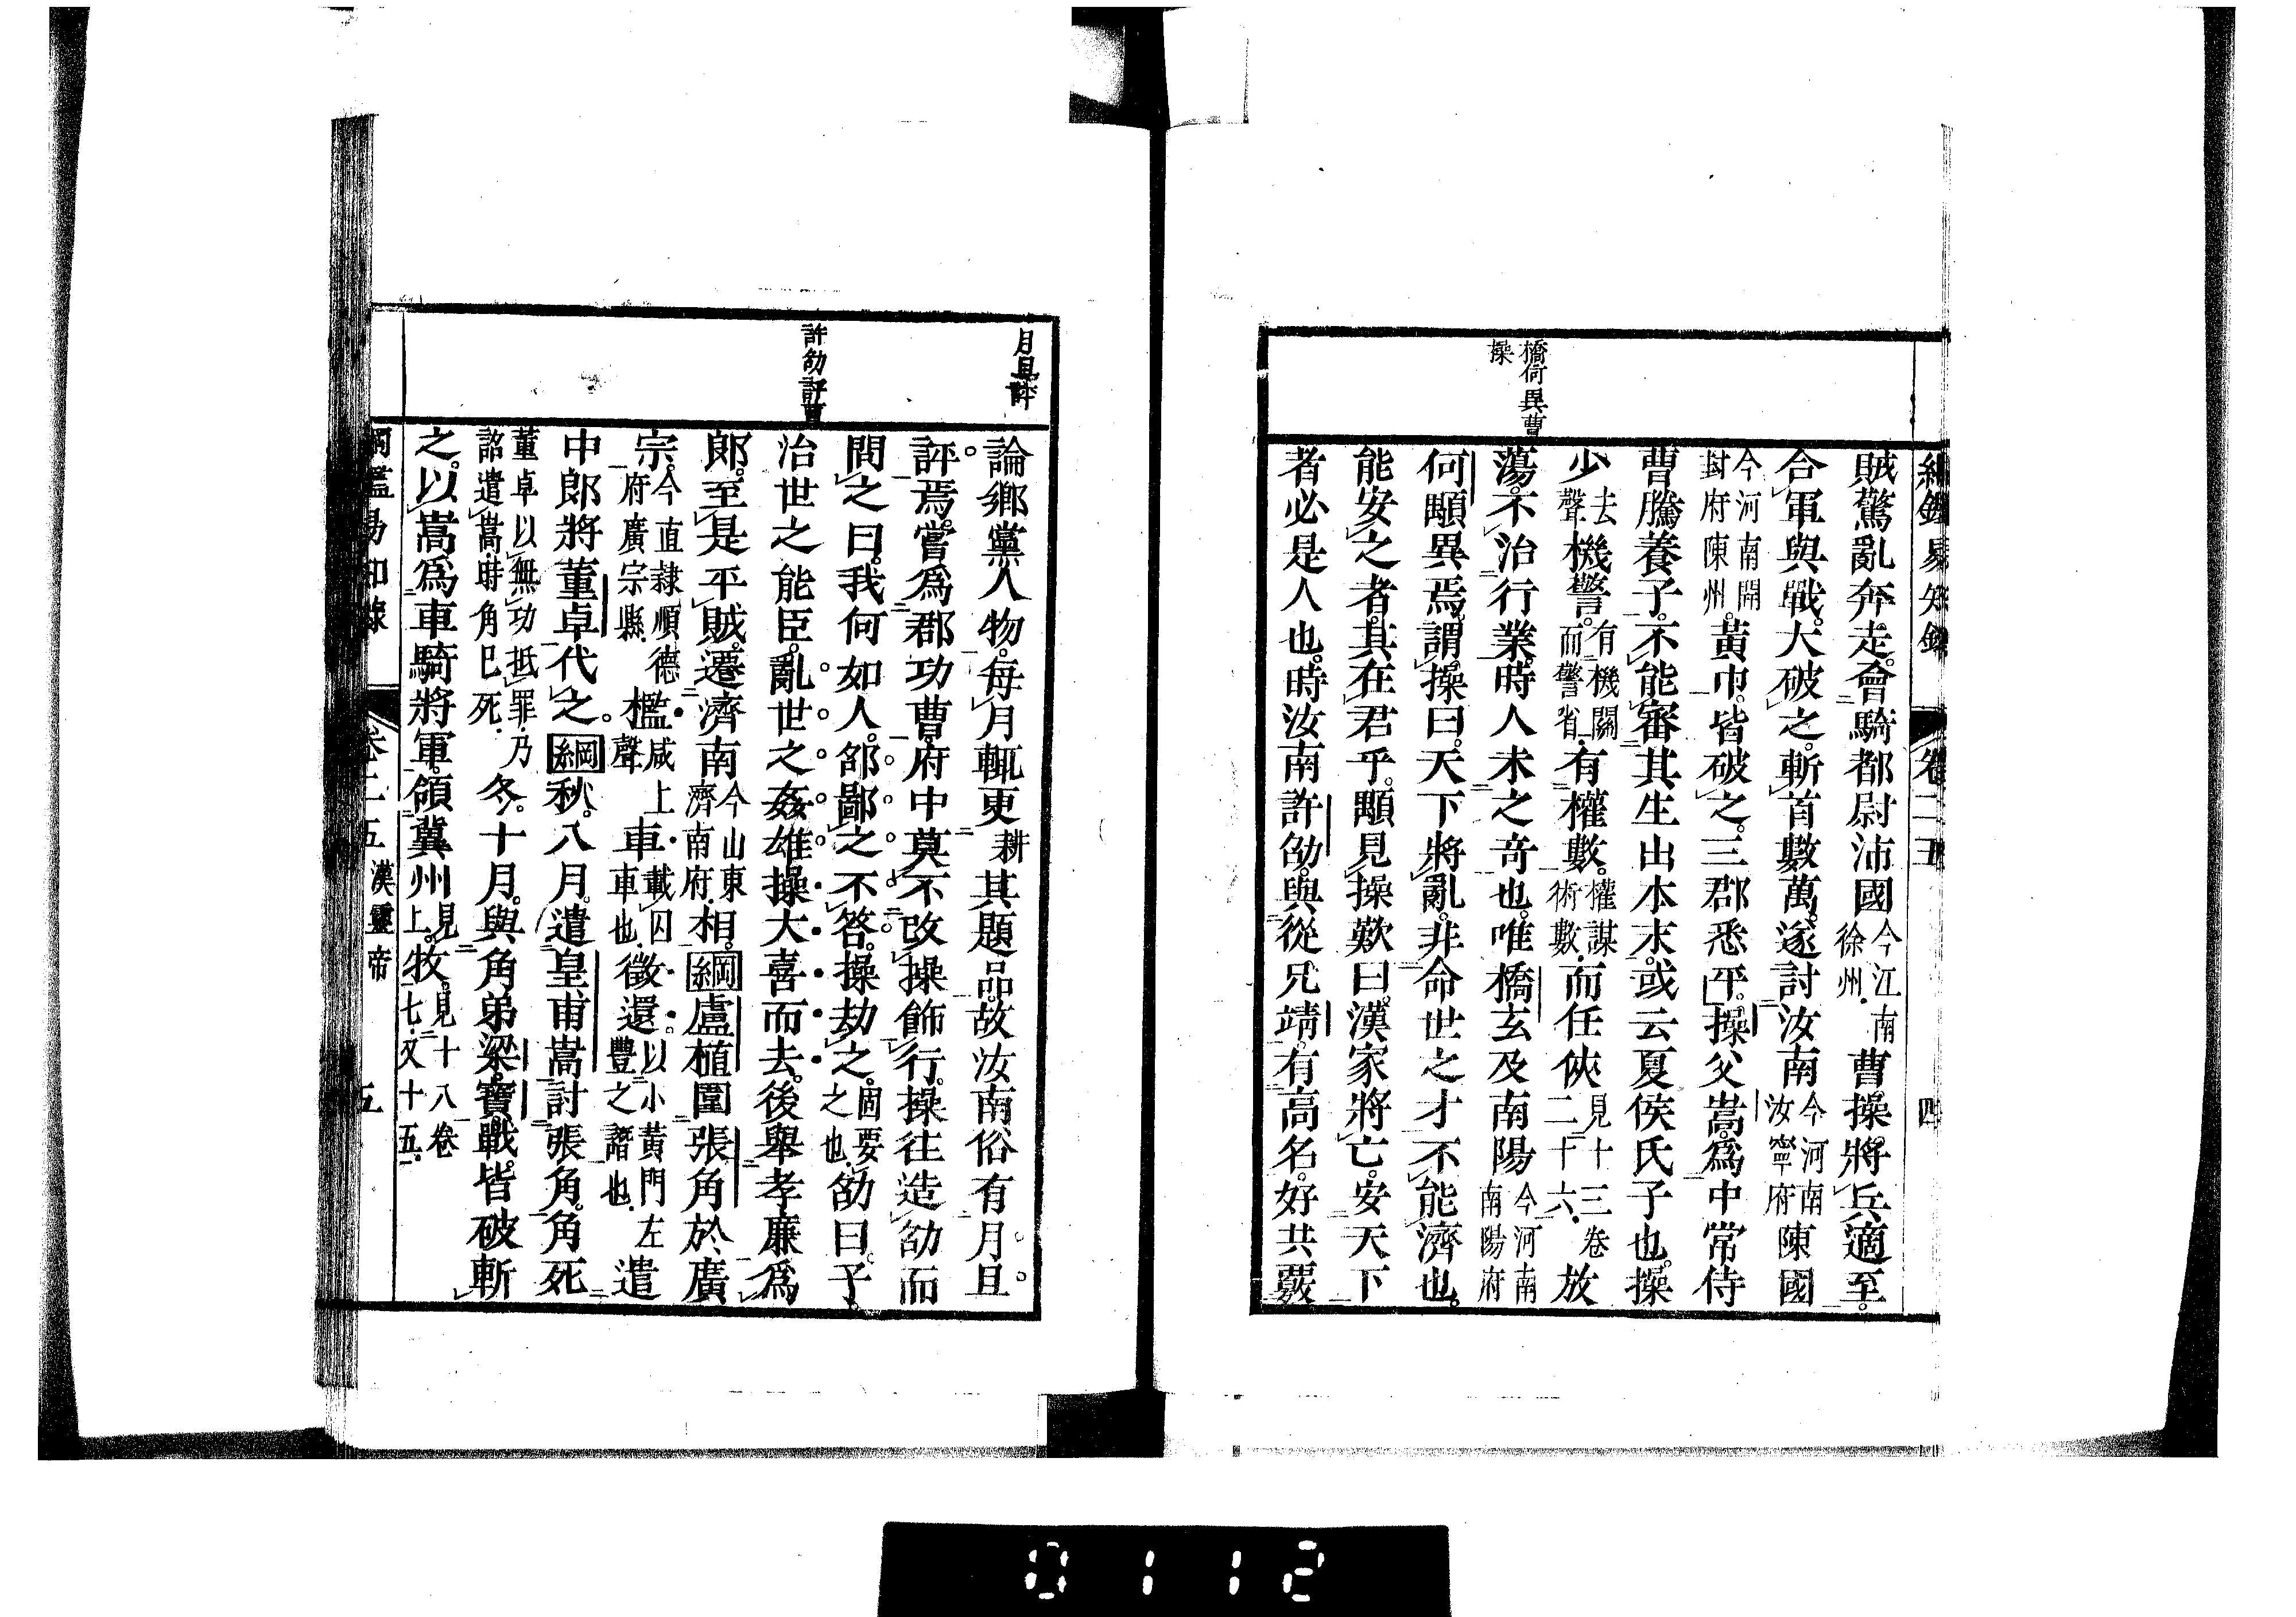 綱鑑易知錄 卷二五 四
橋何異曹
操
賊驚亂奔走會騎都尉沛國今江南徐州曹操將兵適至
合軍與戰大破之斬首數萬遂討汝南今河南汝寧府陳國
今河南開封府陳州黃巾皆破之三郡悉平操父嵩爲中常侍
曹騰養子不能審其生出本末或云夏侯氏子也操
少去聲機警有機關而警省有權數權謀術數而任俠見十三卷二十六放
蕩不治行業時人未之奇也唯橋玄及南陽今河南南陽府
何顒異焉謂操曰天下將亂非命世之才不能濟也
能安之者其在君乎顒見操歎曰漢家將亡安天下
者必是人也時汝南許劭與從兄靖有高名好共覈
月旦評
許劭評曹
論鄉黨人物每月輒更耕其題品故汝南俗有月旦
評焉嘗爲郡功曹府中莫不改操飾行操往造劭而
問之曰我何如人劭鄙之不答操劫之固要之也劭曰子
治世之能臣亂世之姦雄操大喜而去後舉孝廉爲
郎至是平賊遷濟南今山東濟南府相綱盧植圍張角於廣
宗今直隷順德府廣宗縣檻咸上聲車載囚車也徵還以小黃門左豐之譖也遣
中郎將董卓代之綱秋八月遣皇甫嵩討張角角死
董卓以無功抵罪乃詔遣嵩時角巳死冬十月與角弟梁寶戰皆破斬
之以嵩爲車騎將軍領冀州見上牧見十八卷七又十五
綱鑑易知錄 卷二五 漢靈帝 五
0112